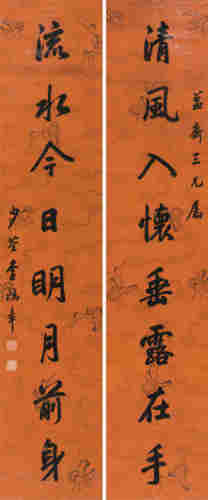 齋三兄屬
清風入懷垂露在手
流水今日明月前身
少荃李鴻章